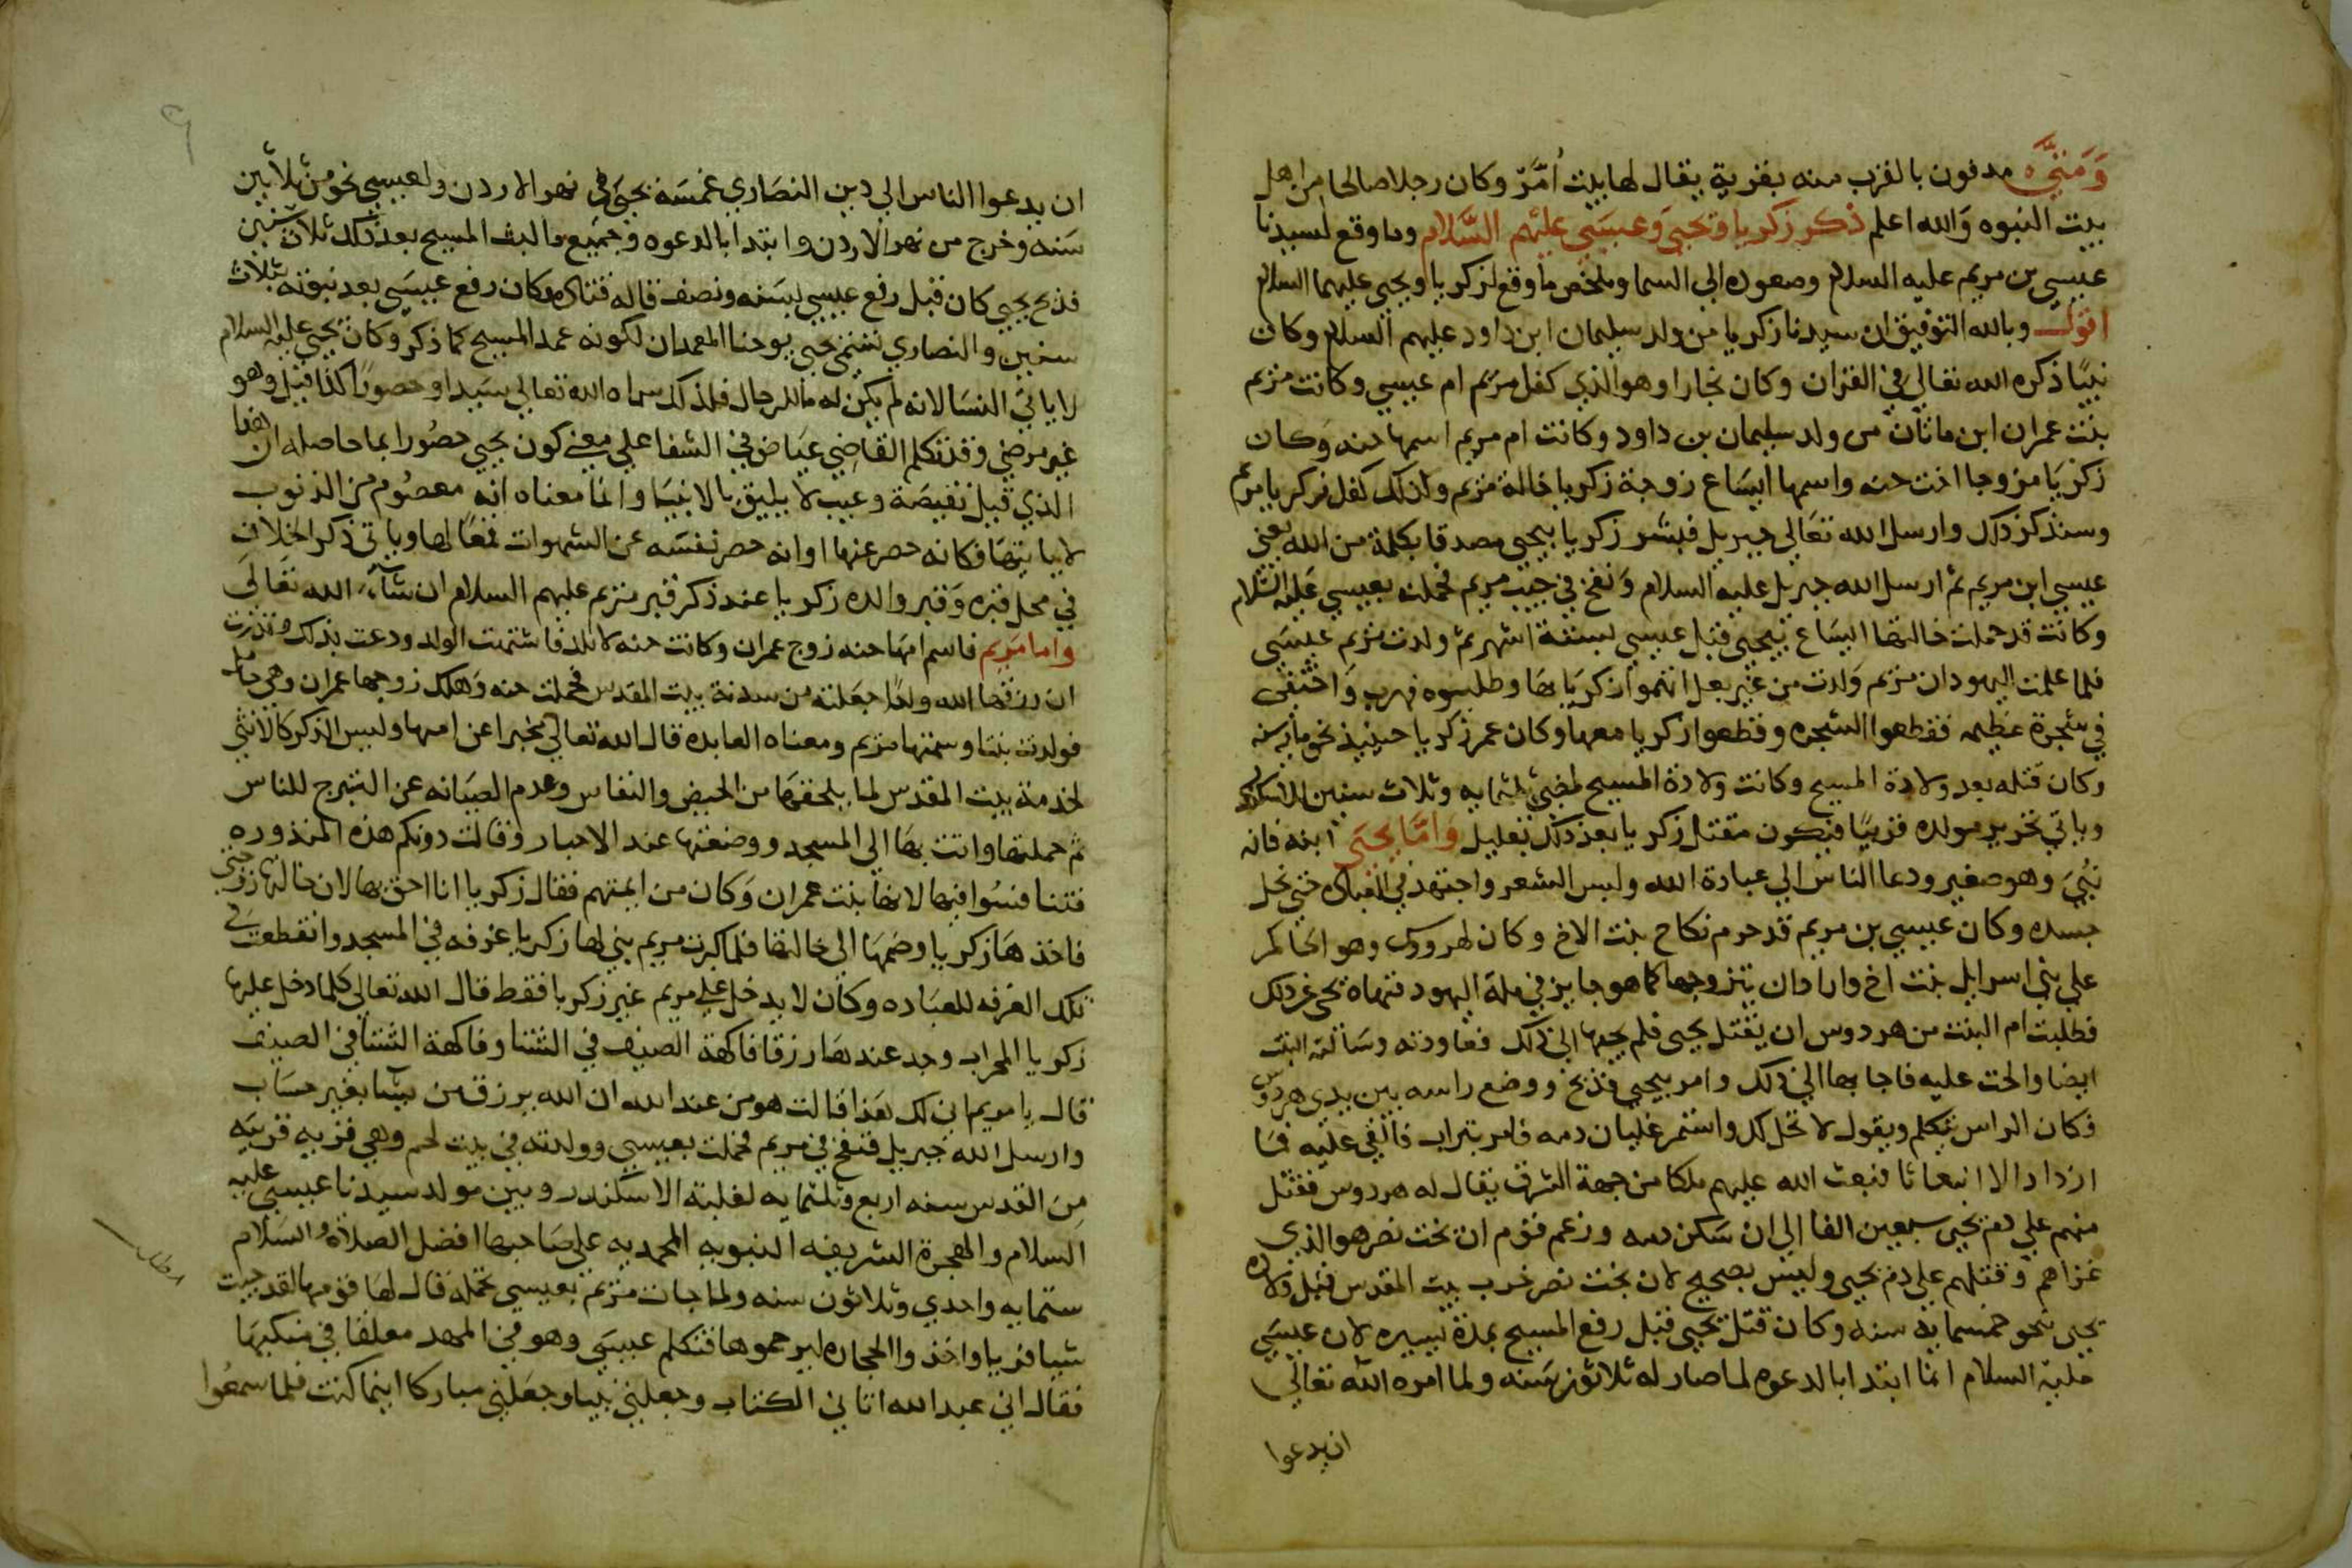 وَمَتىَّ مدفون بالقرب منه بقرية يقال لها بيت اُمَّرْ وكان رجلا صالحا من اهل
بيت النبوه وَالله اعلم ذكر زكريا ويحيى وَعيسَى عليْهم السَّلام وما وقع لسيدنا
عيسى بن مريم عليه السلام وصعوده الى السما وملخص ما وقع لزكريا ويحيى عليهما السلام
اقول وبالله التوفيق ان سيدنا زكريا من ولد سليمان ابن داود عليهم السلام وكان
نبيًا ذكره الله تعالي في القران وكان نجارا وهو الذي كفل مريم ام عيسي وكانت مريم
بنت عمران ابن ماثان من ولد سليمان بن داود وكانت ام مريم اسمها حنه وكان
زكريَا مزوجا اخت حنه واسمها ايسَاع زوجة زكريا خالة مريم ولذلك كفل زكريا مريم
وسنذكر ذلك وارسل الله تعَالي جبريل فبشر زكريا بيحيى مصدقا بكلمة من الله يعني
عيسي ابن مريم ثم ارسل الله جبريل عليه السلام وَنفخ في جيب مريم فحملت بعيسي عَليه السّلام
وكانت قد حملت خالتها ايسَاع بيحيى قبل عيسي بستة اشهر ثم ولدت مريم عيسَى
فلما علمت اليهود ان مريم وَلدت من غير بعل اتهموا زكريَا بها وطلبوه فهرب وَاختفى
في شجرة عظيمه فقطعوا الشجره وقطعوا زكريا معها وكان عمر زكريا حينيذ نحو مايه سنه
وكان قتله بعد ولادة المسيح وكانت ولادة المسيح لمضي ثلثمايه وثلاث سنين للاسكندر
وياتي تحرير مولده قريبًا فيكون مقتل زكريا بعد ذلك بقليل وَامّا يحيَى ابنه فانه
نبُيَ وهو صغير ودعا الناس الي عبادة الله ولبس الشعر واجتهد في العباده حتى نحل
جسده وكان عيسي بن مريم قد حرم نكاح بنت الاخ وكان لهردوس وهو الحاكم
علي بني اسرايل بنت اخ واراد ان يتزوجها كما هو جايز في ملة اليهود فنهاه يحيى عن ذلك
فطلبت ام البنت من هردوس ان يقتل يحيى فلم يجبها الي ذلك فعاودته وسَالته البنت
ايضا والحت عليه فاجابها الي ذلك وامر بيحيي فذبح ووضع راسه بين يدي هردوس
فكان الراس تتكلم ويقول لا تحل لك واستمر غليان دمه فامر بتراب فالقي عليه فما
ازداد الا انبعاثا فبعث الله عليهم ملكا من جهة الشرق يقال له هردوس فقتل
منهم علي دم يحيى سبعين الفا الي ان سَكن دمه وزعم قوم ان بخت نصر هو الذي
غزاهم وقتلهم علي دم يحيى وليس بصحيح لان بخت نصر خرب بيت المقدس قبل ولادة
يحيى بنحو خمسمايه سنه وكان قتل يحيى قبل رفع المسيح بمدة يسيره لان عيسَي
عليه السلام انما ابتدا بالدعوه لما صار له ثلاثون سَنه ولما امره الله تعالي
ان يدعوا
ان يدعوا الناس الي دين النصَاري غمسَه يحيَى في نهر الاردن ولعيسي نحو من ثلاثين
سَنه وخرج من نهر الاردن وابتدا بالدعوه وجميع ما لبث المسيح بعد ذلك ثلاث سنين
فذبح يحيى كان قبل رفع عيسي بسَنه ونصف قاله قتاده وكان رفع عيسَي بعد نبوته بثلاث
سنين والنصاري تسمي يحيى يوحنا المعمدان لكونه عمد المسيح كما ذكر وكان يحيى عليه السلام
لا ياتي النسَا لانه لم يكن له ما للرجال فلذلك سماه الله تعالي سَيدا وحصورًا كذا قيل وهو
غير مرضي وقد تكلم القاضِي عيَاض في الشفا علي معني كون يحيى حصُورا بما حاصله ان هذا
الذي قيل نقيصَة وعيب لا يليق بالانبيَا وانما معناه انه معصُوم من الذنوب
لا ياتيهَا فكانه حصر عنها او انه حصر نفسَه عن الشهوات قمعًا لها وياتي ذكر الخلاف
في محل قبره وَقبر والده زكريا عند ذكر قبر مريم عليهم السلام ان شآء الله تعَالَى
واما مَريم فاسم امهَا حنه زوج عمران وكانت حنه لا تلد فاشتهت الولد ودعت بذلك ونذرت
ان رزقها الله ولدًا جعَلته من سدنة بيت المقدس فحملت حنه وَهلك زوجها عمران وهي حامل
فولدت بنتا وسمتها مريم ومعناه العابده قال الله تعالي مخبرا عن امها وليس الذكر كالانثي
لخدمة بيت المقدس لما يلحقهَا من الحيض والنفاس وعدم الصيَانه عن التبرج للناس
ثم حملتها واتت بهَا الي المسجد ووضعتها عند الاحبار وقالت دونكم هذه المنذوره
فتنافسُوا فيها لانها بنت عمران وَكان من ايمتهم فقال زكريا انا احق بها لان خالتها زوجتي
فاخذهَا زكريا وضمهَا الي خالتها فلما كبرت مريم بني لها زكريا غرفه في المسجد وانقطعت في
تلك الغرفه للعبَاده وكان لا يدخل علي مريم غير زكريا فقط قال الله تعالي كلما دخل عليها
زكريا المحراب وجد عندهَا رزقا فاكهة الصيف في الشتا وفاكهة الشتا في الصيف
قال يا مريم اني لك هَذا قالت هو من عند الله ان الله يرزق من يشَا بغير حسَاب
وارسل الله جبريل فنفخ في مريم فحملت بعيسي وولدته في بيت لحم وهي قريه قريبَه
مِنَ القدس سنه اربع وثلثمايه لغلبة الاسكندر وبين مولد سيدنا عيسي عليه
السلام والهجرة الشريفه النبويه المحمديه علي صَاحبها افضل الصلاة والسَلام
ستمايه واحدي وثلاثون سنه ولما جات مريم بعيسي تحمله قال لهَا قومها لقد جيت
شيا فريا واخذوا الحجاره ليرجموها فتكلم عيسَي وهو في المهد معلقا في منكبهَا
فقال اني عبد الله اتاني الكتاب وجعلني نبيا وجعَلني مباركا اينما كنت فلما سمعُوا